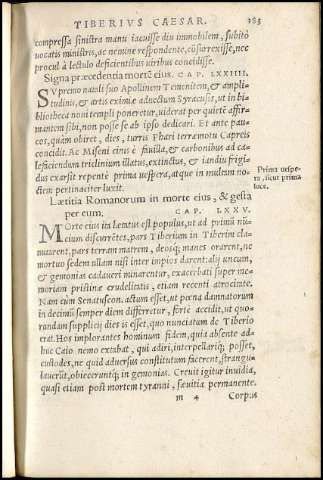 TIBERIVS CAESAR. 183
compressa sinistra manu iacuisse diu immobilem, subitò
uocatis ministris, ac nemine respondente, cōsurrexisse, nec
procul à lectulo deficientibus uiribus concidisse.
Signa præcedentia mortē eius. CAP. LXXIIII.
SVpremo natali suo Apollinem Temenitem, & ampli-
tudinis, & artis eximiæ aduectum Syracusis, ut in bi-
bliotheca noni templi poneretur, uiderat per quietē affir-
mantem sibi, non posse se ab ipso dedicari. Et ante pau-
cos, quàm obiret, dies, turris Phari terræmotu Capreis
concidit. Ac Miseni cinis è fauilla, & carbonibus ad ca-
lefaciendum triclinium illatus, extinctus, & iandiu frigi-
dus exarsit repentè prima uespera, atque in multam no-
ctem pertinaciter luxit.
Prima uespe-
ra, sicut prima
luce.
Lætitia Romanorum in morte eius, & gesta
per eum. CAP. LXXV.
MOrte eius ita lætatus est populus, ut ad primū nū-
cium discurrētes, pars Tiberium in Tiberim cla-
marent, pars terram matrem, deosq; manes orarent, ne
mortuo sedem ullam nisi inter impios darent: alij uncum,
& gemonias cadaueri minarentur, exacerbati super me-
moriam pristinæ crudelitatis, etiam recenti atrocitate.
Nam cum Senatuscon. actum esset, ut pœna damnatorum
in decimū semper diem differretur, fortè accidit, ut quo-
rundam supplicij dies is esset, quo nunciatum de Tiberio
erat. Hos implorantes hominum fidem, quia absente ad-
huc Caio nemo extabat, qui adiri, interpellariq; posset,
custodes, ne quid aduersus constitutum facerent, strangu-
lauerūt, obieceruntq; in gemonias. Creuit igitur inuidia,
quasi etiam post mortem tyranni, sæuitia permanente.
m 4 Corpus